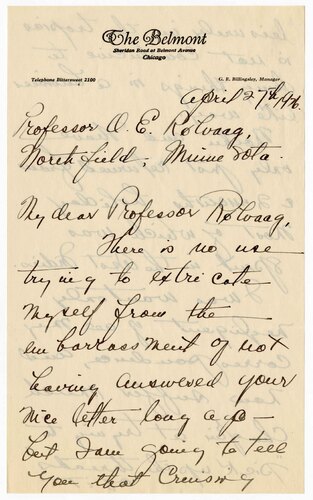 The Belmont
Sheridan Road at Belmont Avenue
Chicago
Telephone Bittersweet 2100
G. E. Billingsley, Manager
April 27th,
Professor O. E. Rolvaag,
Northfield, Minnesota.
My dear Professor Rolvaag,
There is no use
trying to extricate
myself from the
embarrassment of not
having answered your
nice letter long ago –
but I am going to tell
you that Cruising